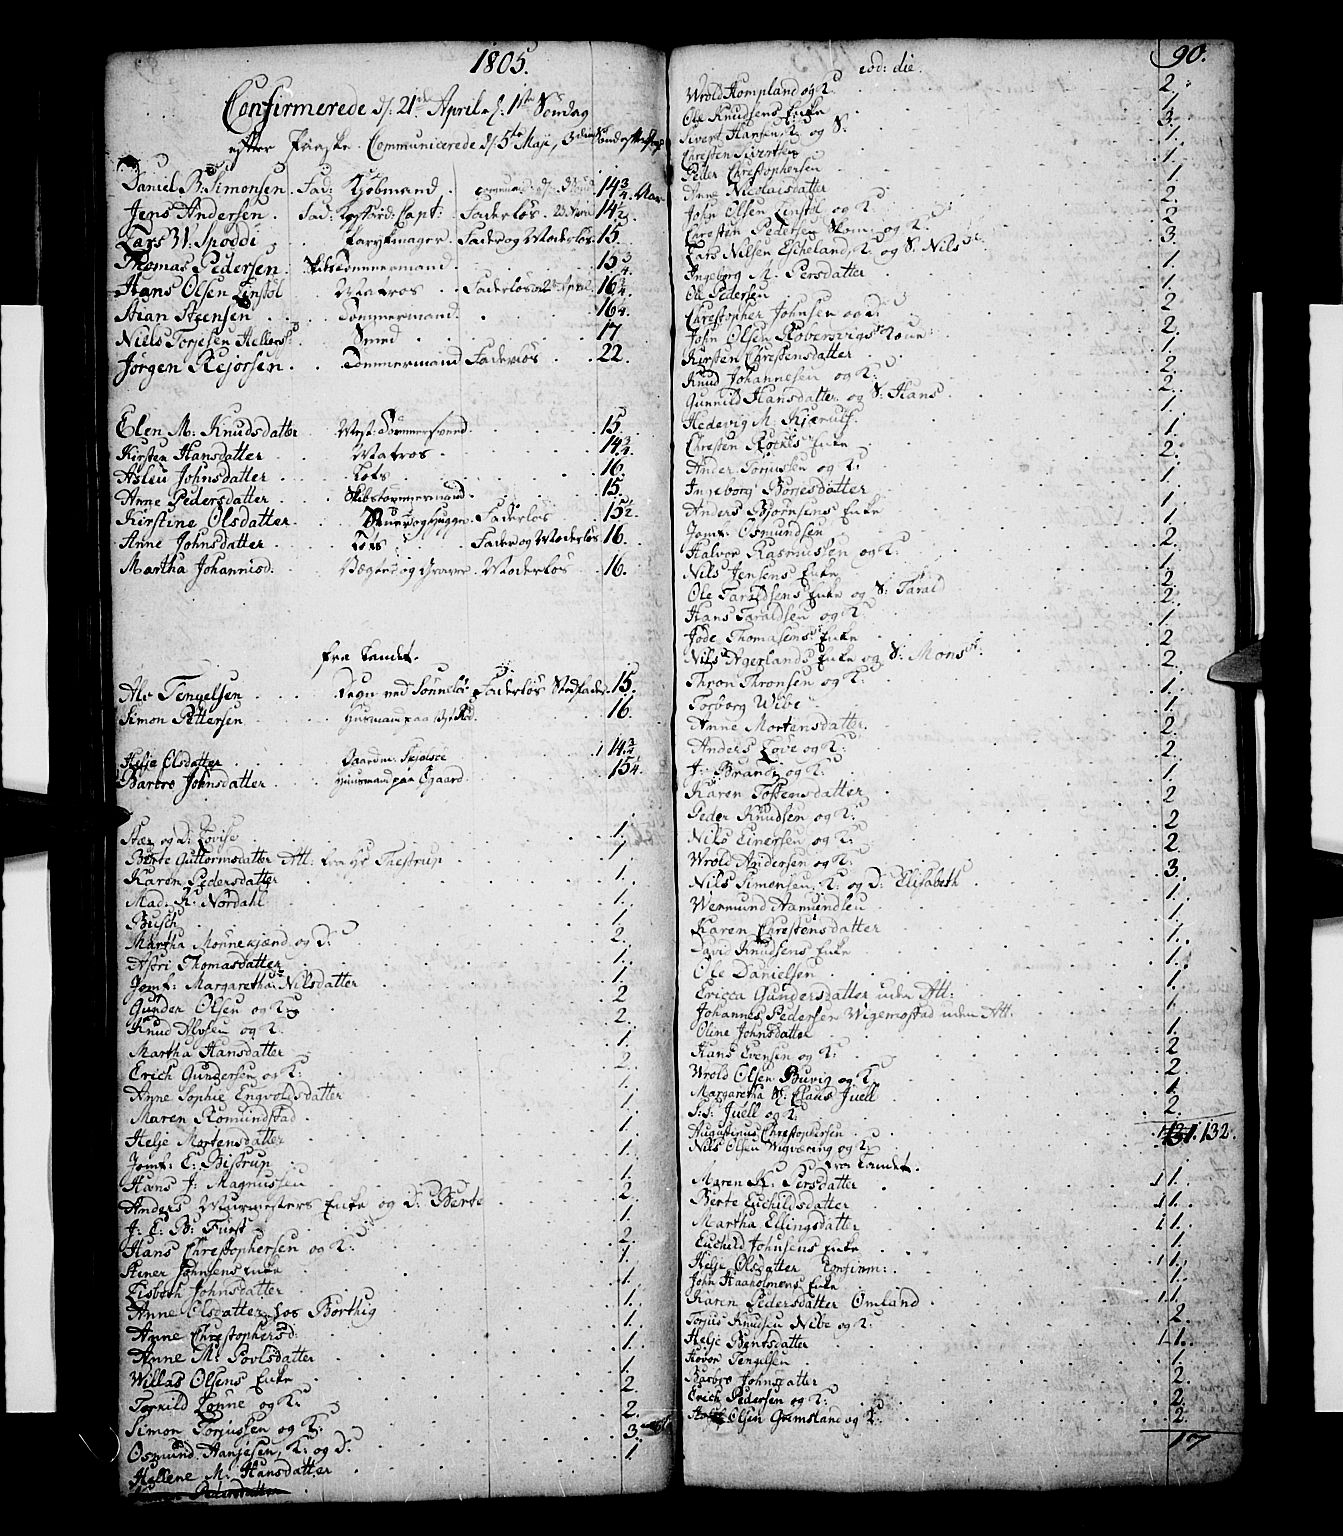 1805.
Confirmerede d. 21de April d. 1ste Søndag
efter Paaske. Communicerede d. 5te Maji, 3die
Daniel B. Simonsen. Fad: Kjøbmand 14 3/4 Aar
Jens Andersen. Fad: Capt: Faderløs 14 1/2
Lars W. Spoddi Parykmager. Fader og Moderløs 15.
Thomas Pedersen. Skibstømmermand. 15 3/4
Hans Olsen Linstøl Matros Faderløs 16 3/4
Aian Steensen Tømmermand. 16 1/4.
Niels Torjesen Smed 17
Jørgen Rejorsen Tømmermand Faderløs 22.
Elen M. Knudsdatter 15.
Kirsten Hansdatter Matros. 14 3/4
Aslau Johnsdatter Lots 16
Anne Pedersdatter Skibstømmermand. 15.
Kirstine Olsdatter. Faderløs 15 1/2
Anne Johnsdatter Lots Fader og Moderløs 16.
Martha Johannisd. Moderløs 16.
fra Landet.
Alv Tengelsen Faderløs Stedfader 15.
Simon Pettersen Husmand paa 16.
Helje Olsdatter Gaardm: 14 3/4
Barbro Johnsdatter Huusmand paa Egaard 15 1/4.
og D: Lovise 1.
Berte Guttormsdatter Att: fra Hr Thestrup 1
Karen Pedersdatter 1.
Mad. K. Nordahl 1.
Busch 1
Martha Monnekjænd og D: 2.
Astri Thomasdatter 1.
Jomf: Margaretha Nilsdatter 1
Gunder Olsen og K: 2
Knud Alvsen og K. 2.
Martha Hansdatter 1.
Erich Gundersen og K: 2.
Anne Sophie Engvoldsdatter 1.
Maren Romundstad 1
Helje Mortensdatter 1.
Jomf: C: Bistrup 1.
Hans J: Magnussen 1.
Anders Murmesters Enke og D: Berte 2.
J: C: B: Furst 1.
Hans Christophersen og K: 2.
Stener Johnsens Enke 1.
Lisbeth Johnsdatter 1.
Anne Olsdatter hos Borthig 1.
Anne Christophersd: 1.
Anne M: Povlsdatter 1.
Willas Olsens Enke 1.
Torkild Lonne og K: 2.
Simon Torjussen og K: 2.
Osmund Aanjesen, K: og D: 3.
Hellene M: Hansdatter 1.
90.
eod: die.
Wrold Hompland og K: 2.
Ole Knudsens Enke 1.
Sivert Hansen, K: og S. 3.
Christen Sivertsen 1.
Peder Christophersen 1.
Anne Nicolaisdatter 1.
John Olsen Linstøl og K: 2.
Christen Pedersen og K. 2.
Lars Nilsen Eskeland, K: og S. Nils 3.
Ingeborg M. Persdatter 1.
Ole Pedersen 1.
Christopher Johnsen og D: 2.
John Olsen Kobersvigs Kone 2.
Kirsten Christensdatter 1.
Knud Johannesen og K: 2.
Gunnild Hansdatter og S: Hans 2.
Hedevig M. Kjerulf 1.
Christen Enke 1.
Ander Tonnssen og K: 2.
Ingeborg Borresdatter 1.
Anders Bjørnsens Enke 1.
Jomf: Osmundsen 1.
Halvor Rasmussen og K: 2.
Nils Jensens Enke 1.
Ole Taraldsens Enke og S: Tarald 2.
Hans Taraldsen og K: 2.
Jode Thomasens Enke 1.
Nils Agerlands Enke og S: Mons 2.
Thron Thronsen og K: 2.
Torborg Wibe 1.
Anne Mortensdatter 1.
Anders Love og K: 2.
J: Brandt og K: 2.
Karen Tostensdatter 1.
Peder Knudsen og K: 2
Nils Einersen og K: 2
Wrold Andersen og K: 2.
Nils Simonsen, K: og D: Elisabeth 3.
Wermund Aamundsen 1.
Karen Christensdatter 1.
David Knudsens Enke 1.
Ole Danielsen 1.
Ericca Gundersdatter uden Att: 1.
Johannes Pedersen Wigemostad uden Att. 1.
Oline Johnsdatter 1.
Hans Evensen og K: 2
Wrold Olsen Buvig og K: 2.
Margaretha K: Claus Juell 1.
S: S: Juell og K: 2.
Augustinus Christophersen
Nils Olsen og K: 131. 132.
fra Landet.
Maren K: Persdatter 1.
Berte Euchildsdatter 1.
Martha Ellingsdatter 1.
Euchild Johnsens Enke 1.
Helje Olsdatter Confirm: 1.
John Haaholmens Enke 1.
Karen Pedersdatter Omland 1.
Torjus Knudsen Nibe og K: 2.
Helje Bentsdatter 1.
Hovor Tengelsen 1.
Barbro Johnsdatter
Erich Pedersen og K: 2.
Olsen Grimsland og K: 2
17